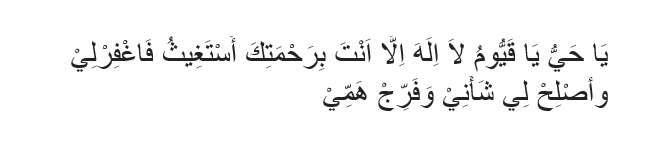 يَا حَيُّ يَا قَيُّومُ لاَ اِلَهَ اِلَّا اَنْتَ بِرَحْمَتِكَ أَسْتَغِيثُ فَاغْفِرْلِيْ
وأصْلِحْ لِي شَأْنِيْ وَفَرِّجْ هَمِّيْ